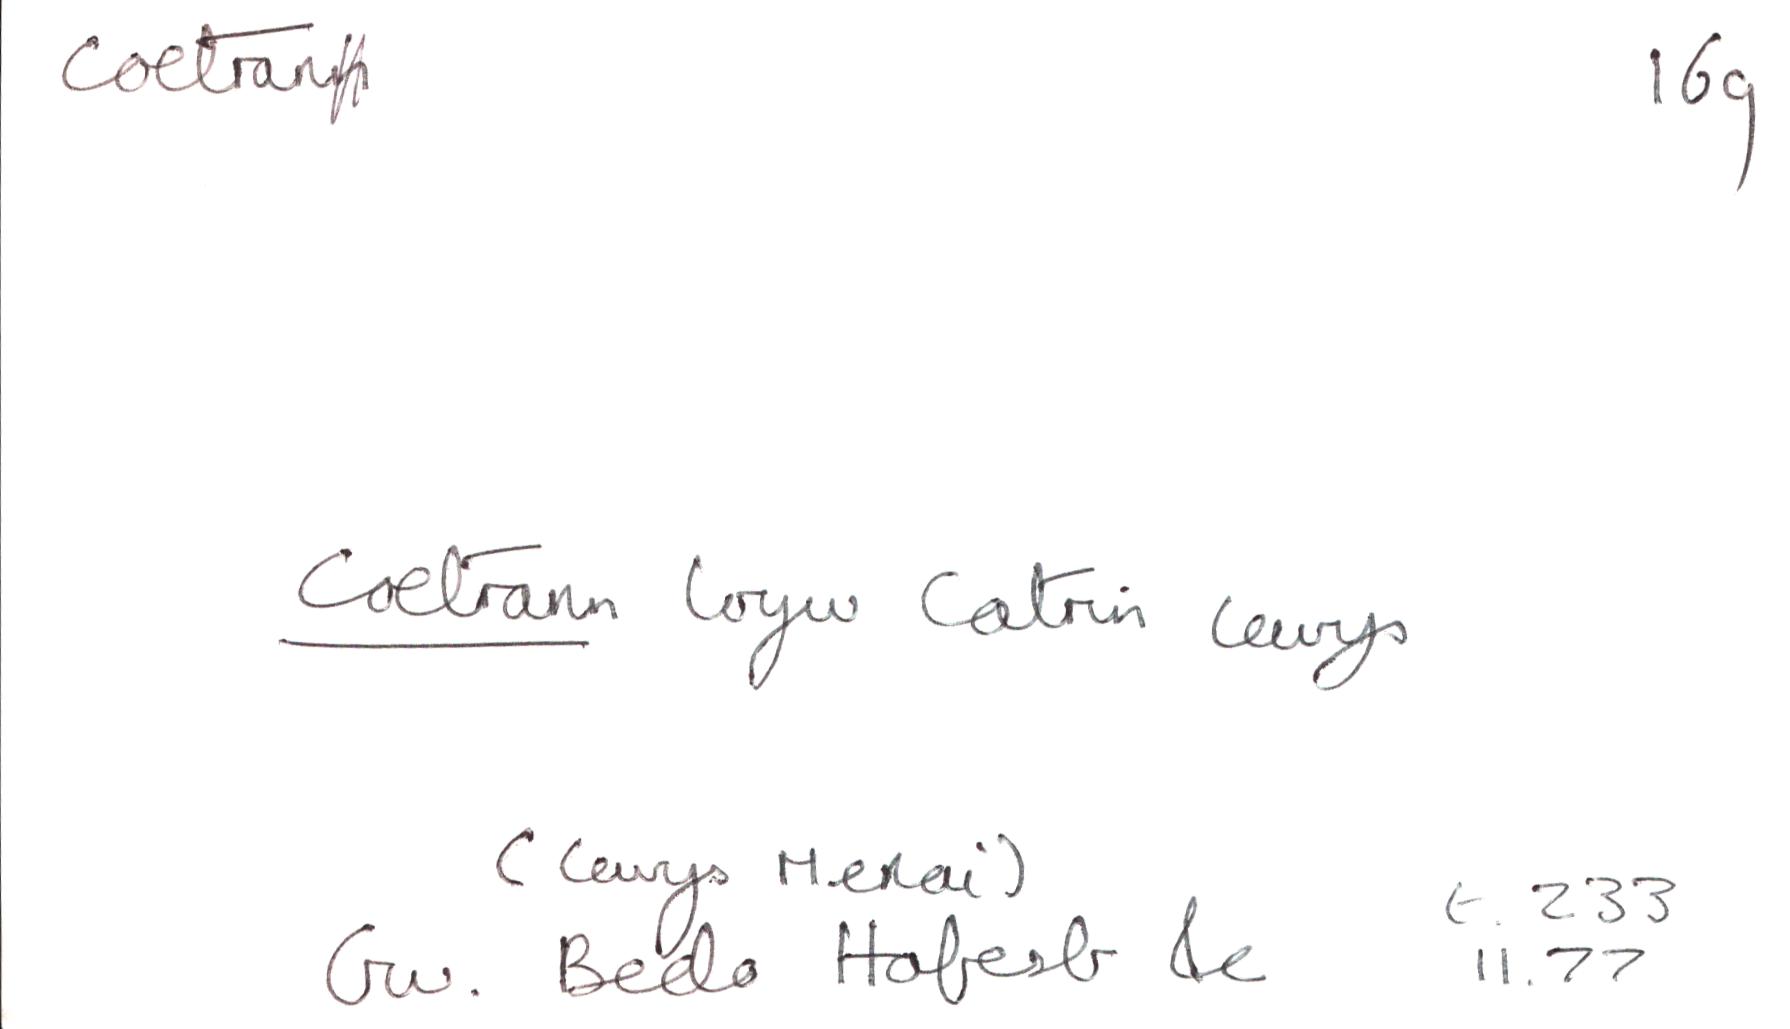 Coetran 16g
Coetrann loyw Catrin Lewys
(Lewys Menai)
Gw. Bedo Hafesb &c t. 233
11.77